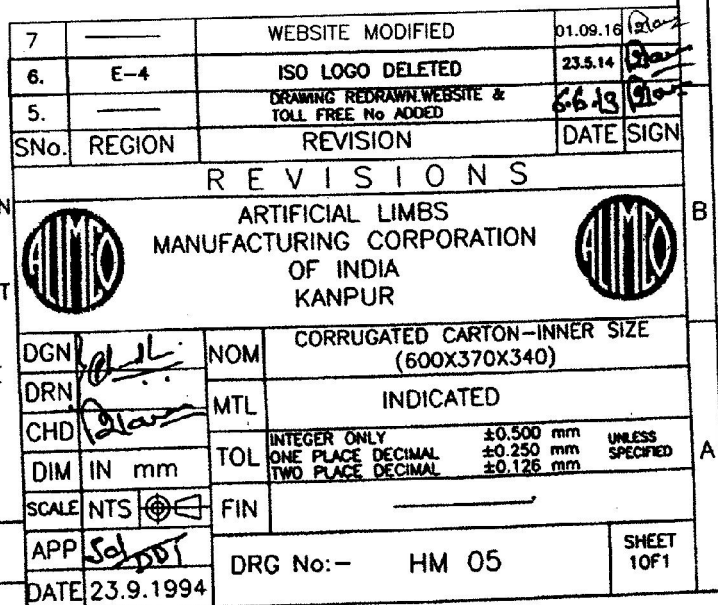 7 ——— WEBSITE MODIFIED 01.09.16
6. E-4 ISO LOGO DELETED 23.5.14
5. ——— DRAWING REDRAWN.WEBSITE &
TOLL FREE No ADDED
SNo. REGION REVISION DATE SIGN
REVISIONS
N
B
ARTIFICIAL LIMBS
MANUFACTURING CORPORATION
OF INDIA
KANPUR
ALIMCO
ALIMCO
T
DGN NOM CORRUGATED CARTON-INNER SIZE
(600X370X340)
DRN
MTL INDICATED
CHD
DIM IN mm TOL INTEGER ONLY ±0.500 mm UNLESS
ONE PLACE DECIMAL ±0.250 mm SPECIFIED
TWO PLACE DECIMAL ±0.126 mm
A
SCALE NTS FIN ———
APP Sd/ DDT DRG No:- HM 05 SHEET
10F1
DATE 23.9.1994